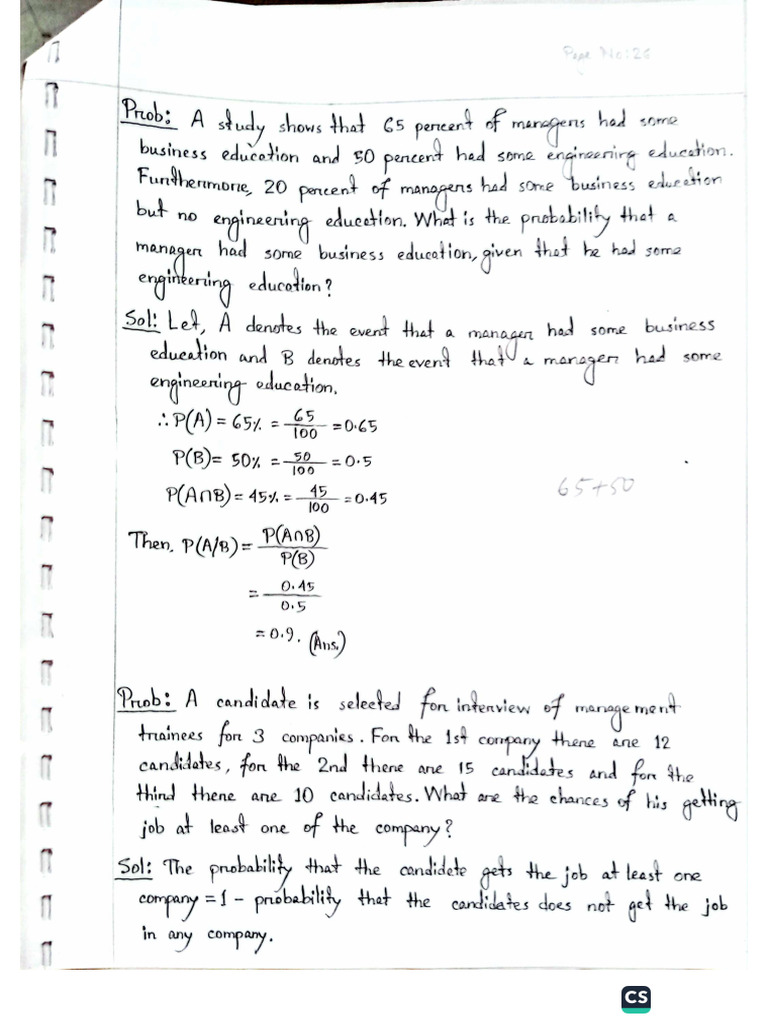 Page No:26
Prob: A study shows that 65 percent of managers had some
business education and 50 percent had some engineering education.
Furthermore, 20 percent of managers had some business education
but no engineering education. What is the probability that a
manager had some business education, given that he had some
engineering education?
Sol: Let, A denotes the event that a manager had some business
education and B denotes the event that a manager had some
engineering education.
∴ P(A) = 65% = 65/100 = 0.65
P(B) = 50% = 50/100 = 0.5
P(A∩B) = 45% = 45/100 = 0.45
65+50
Then, P(A/B) = P(A∩B)/P(B)
= 0.45/0.5
= 0.9. (Ans.)
Prob: A candidate is selected for interview of management
trainees for 3 companies. For the 1st company there are 12
candidates, for the 2nd there are 15 candidates and for the
third there are 10 candidates. What are the chances of his getting
job at least one of the company?
Sol: The probability that the candidate gets the job at least one
company = 1 - probability that the candidates does not get the job
in any company.
CS